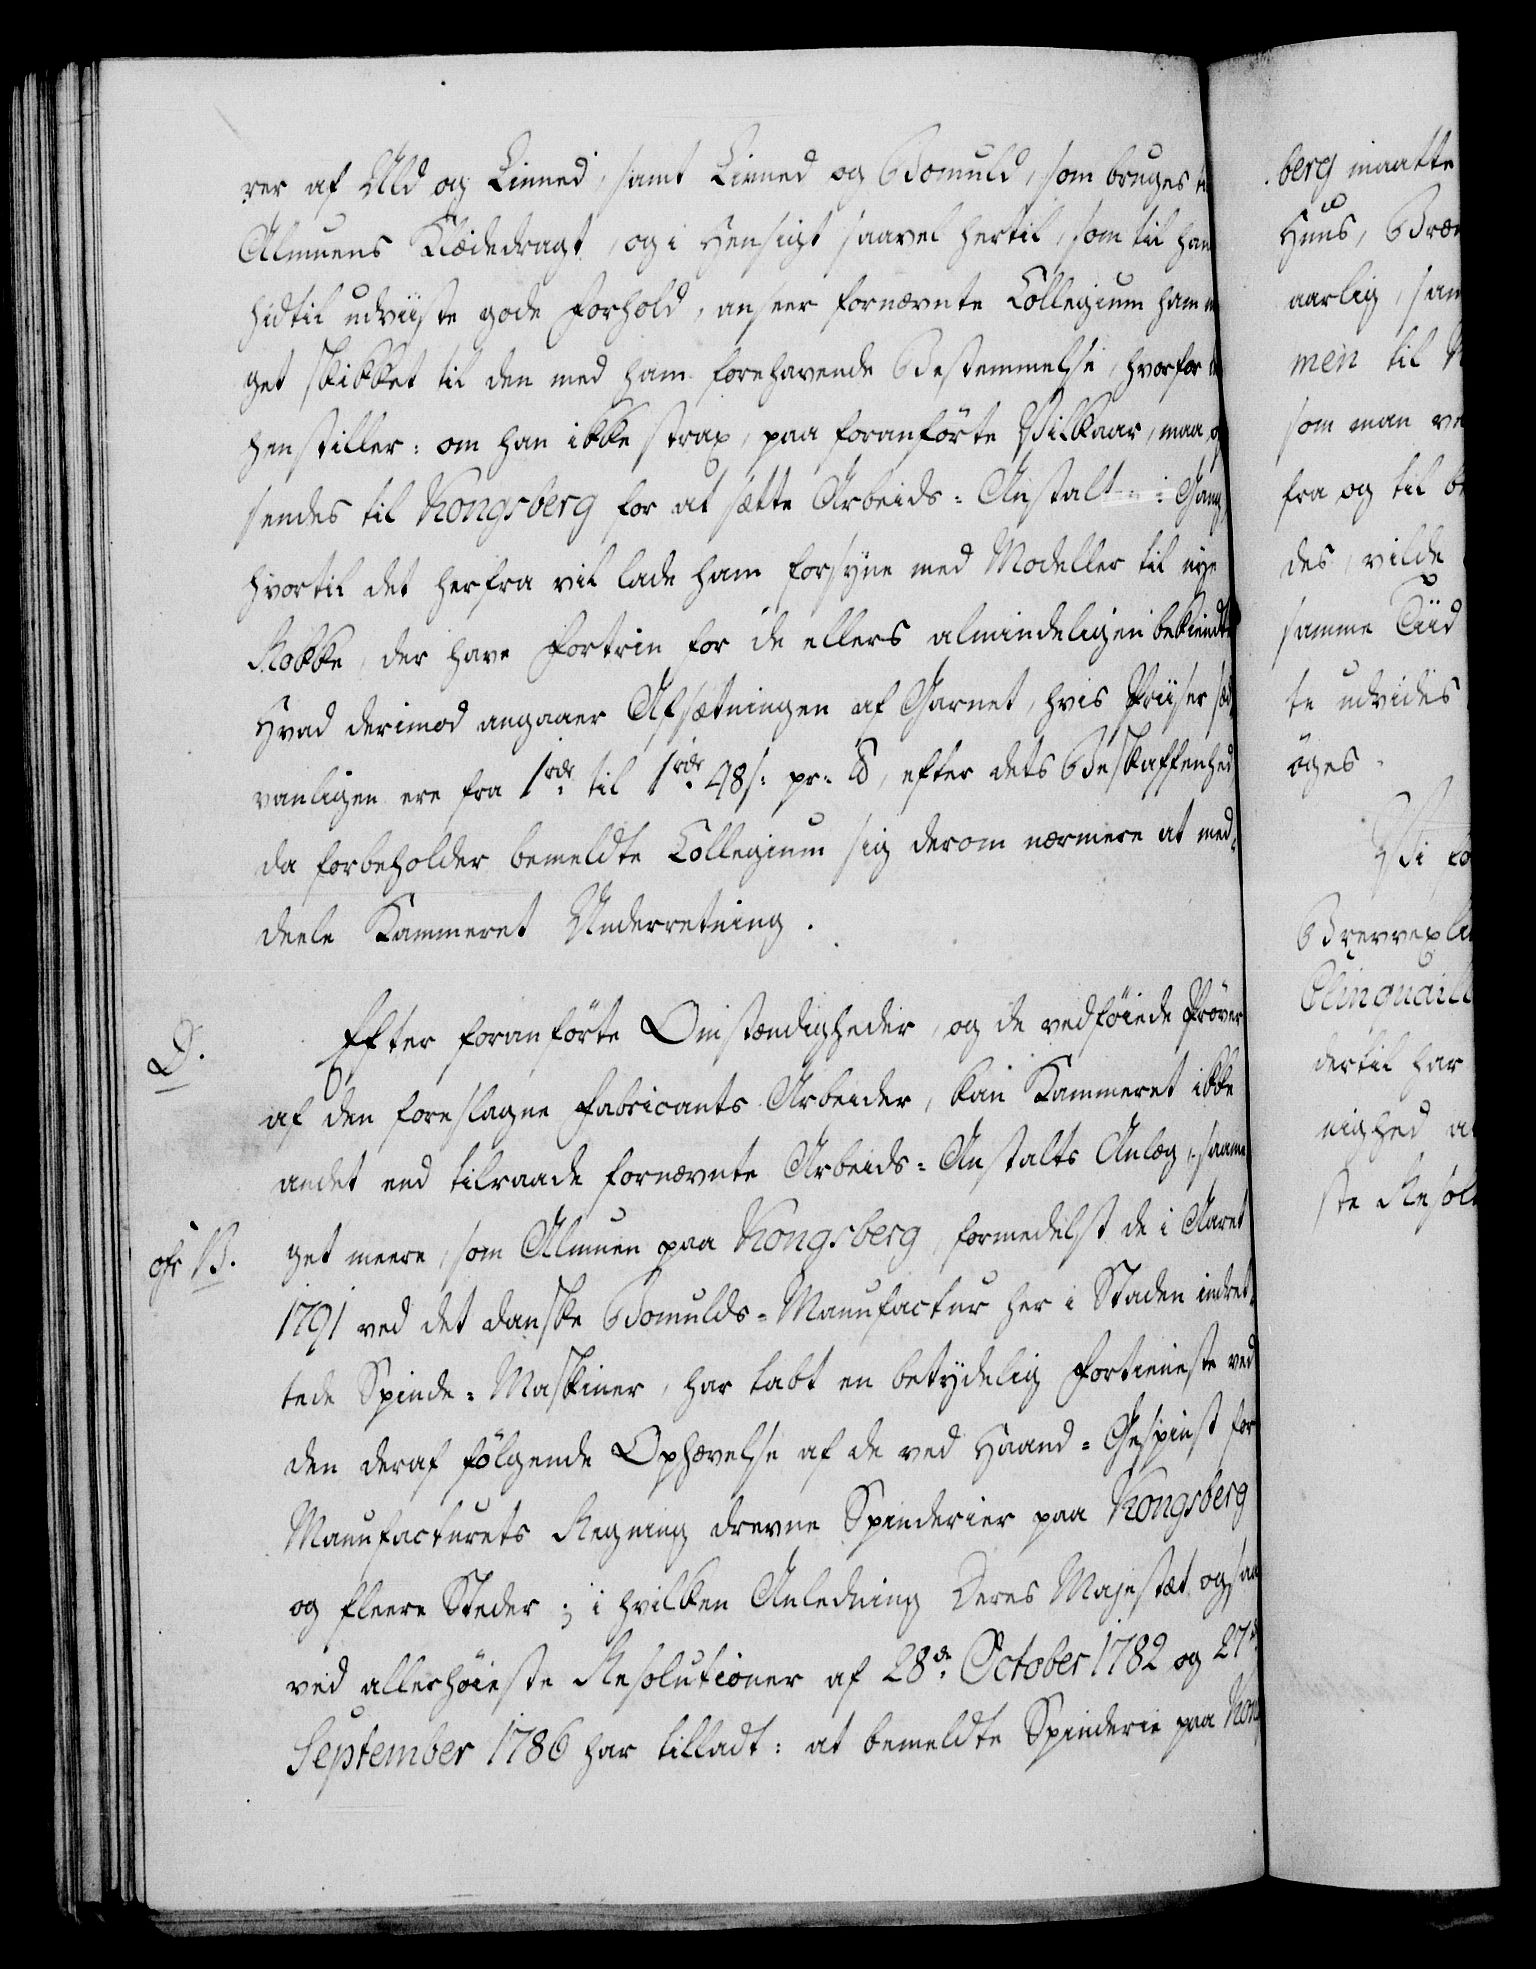 rer af Uld og Linned, samt Linned og Bomuld, som bruges
Almuens Klædedragt, og i Hensigt saavel hertil, som til han
hidtil udviiste gode Forhold, anseer fornævnte Collegium ham
get skikket til den med ham forehavende Bestemmelse, hvorfor
henstiller: om han ikke strax, paa foranførte Vilkaar, maa
sendes til Kongsberg for at sætte Arbeids-Anstalt i Gang
hvortil det herfra vil lade ham forsyne med Modeller til nye
Rokke, der have Fortrin for de ellers almindeligen bekiendte
Hvad derimod angaaer Afsætningen af Garnet, hvis Priiser sæd
vanligen ere fra 1 rdr til 1 rdr 48 s: pr: ℔, efter dets Beskaffenhed
da forbeholder bemeldte Collegium sig derom nærmere at med-
deele Kammeret Underretning.
D.
Efter foranførte Omstændigheder, og de vedføiede Prøver
af den foreslagne Fabricants Arbeider, kan Kammeret ikke
andet end tilraade fornævnte Arbeids-Anstalts Anlæg, saame
cfr B.
get meere, som Almuen paa Kongsberg, formedelst de i Aaret
1791 ved det danske Bomulds-Manufactur her i Staden indret-
tede Spinde-Maskiner, har tabt en betydelig Fortieneste ved
den deraf følgende Ophævelse af de ved Haand-Gespinst for
Manufacturets Regning drevne Spinderier paa Kongsberg
og fleere Steder; i hvilken Anledning Deres Majestæt ogsaa
ved allerhøieste Resolutioner af 28de October 1782 og 27
September 1786 har tilladt: at bemeldte Spinderie paa Kong
berg maatte
Huus, Bræn
aarlig, sam
men til
som man ve
fra og til be
des, vilde
samme Tiid
te udvides
øges.
Vi
dertil har
nighed
ste Resol